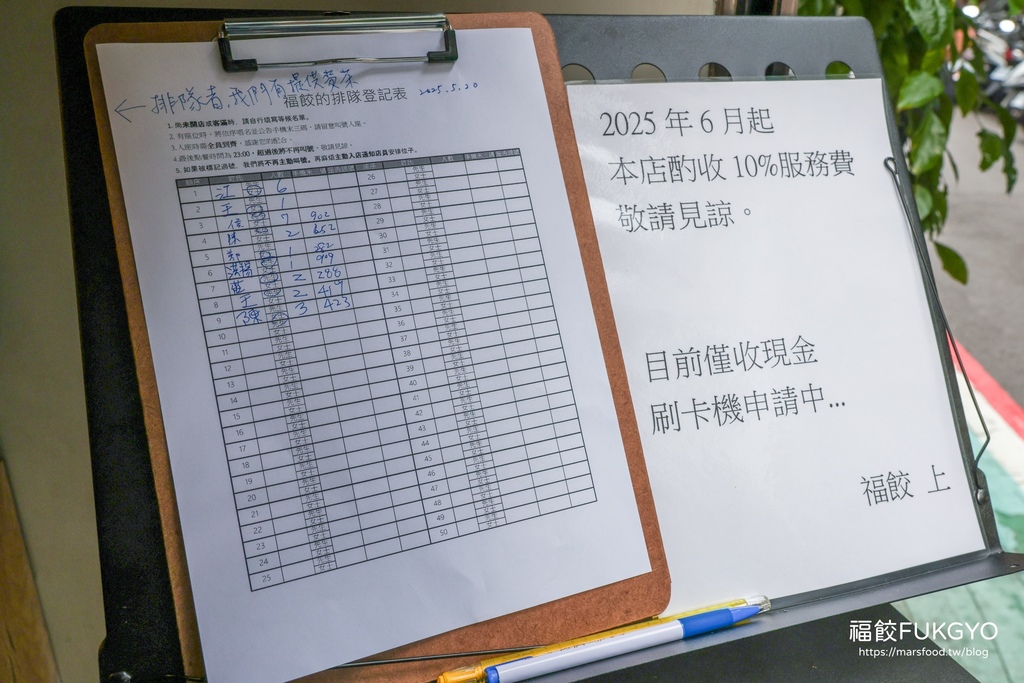 ←排隊者,我們有提供麥茶
福餃的排隊登記表
2025.5.20
1. 尚未開店或客滿時, 請自行填寫等候名單。
2. 有座位時, 將依序唱名並公告手機末三碼, 請留意叫號入座。
3. 入座時需全員到齊, 感謝您的配合。
4. 最後點餐時間為 23:00, 超過後將不再叫號, 敬請見諒。
5. 如果被標記過號, 我們將不再主動叫號。再麻煩主動入店通知店員安排位子。
1 江 6
2 王 1
3 7 902
4 陳 2 652
5 1
6 1 909
7 2 288
8 王 2 419
9 陳 3 423
10
11
12
13
14
15
16
17
18
19
20
21
22
23
24
25
26
27
28
29
30
31
32
33
34
35
36
37
38
39
40
41
42
43
44
45
46
47
48
49
50
2025 年 6 月起
本店酌收 10%服務費
敬請見諒。
目前僅收現金
刷卡機申請中...
福餃 上
福餃FUKGYO
https://marsfood.tw/blog